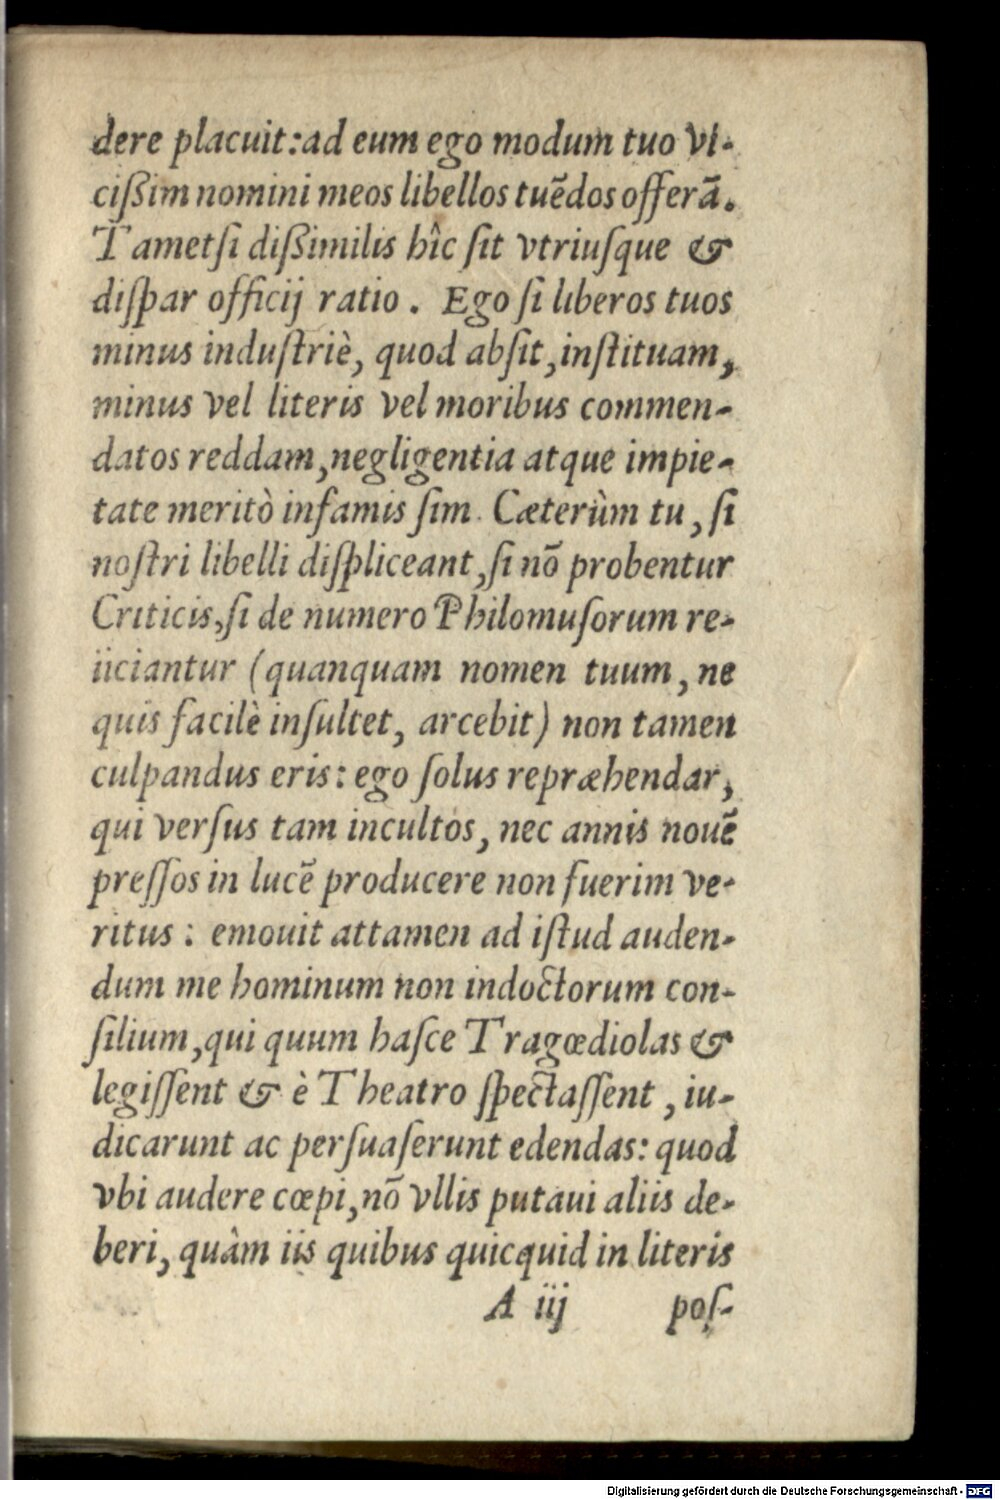 dere placuit: ad eum ego modum tuo vi-
cißim nomini meos libellos tuēdos offerā.
Tametſi dißimilis hîc ſit vtriuſque &
diſpar officij ratio. Ego ſi liberos tuos
minus induſtriè, quod abſit, inſtituam,
minus vel literis vel moribus commen-
datos reddam, negligentia atque impie-
tate meritò infamis ſim. Cæterùm tu, ſi
noſtri libelli diſpliceant, ſi nō probentur
Criticis, ſi de numero Philomuſorum re-
iiciantur (quanquam nomen tuum, ne
quis facilè inſultet, arcebit) non tamen
culpandus eris: ego ſolus repræhendar,
qui verſus tam incultos, nec annis nouē
preſſos in lucē producere non fuerim ve-
ritus: emouit attamen ad iſtud auden-
dum me hominum non indoctorum con-
ſilium, qui quum haſce Tragœdiolas &
legiſſent & è Theatro ſpectaſſent, iu-
dicarunt ac perſuaſerunt edendas: quod
vbi audere cœpi, nō vllis putaui aliis de-
beri, quàm iis quibus quicquid in literis
A iij poſ-
Digitalisierung gefördert durch die Deutsche Forschungsgemeinschaft - DFG